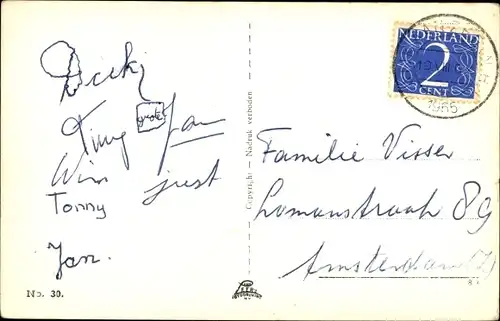 Dicky
Tiny
groter
Jan
Wim
Tonny
Jan.
No. 30.
Copyright - Nadruk verboden
NEDERLAND
2
CENT
1965
Familie Visser
Lomanstraat 89
Amsterdam (Z)